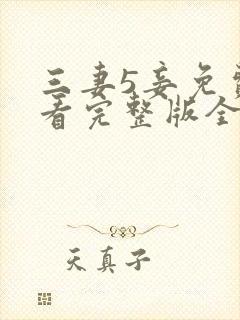 三妻5妾免
看完整版全
天真子